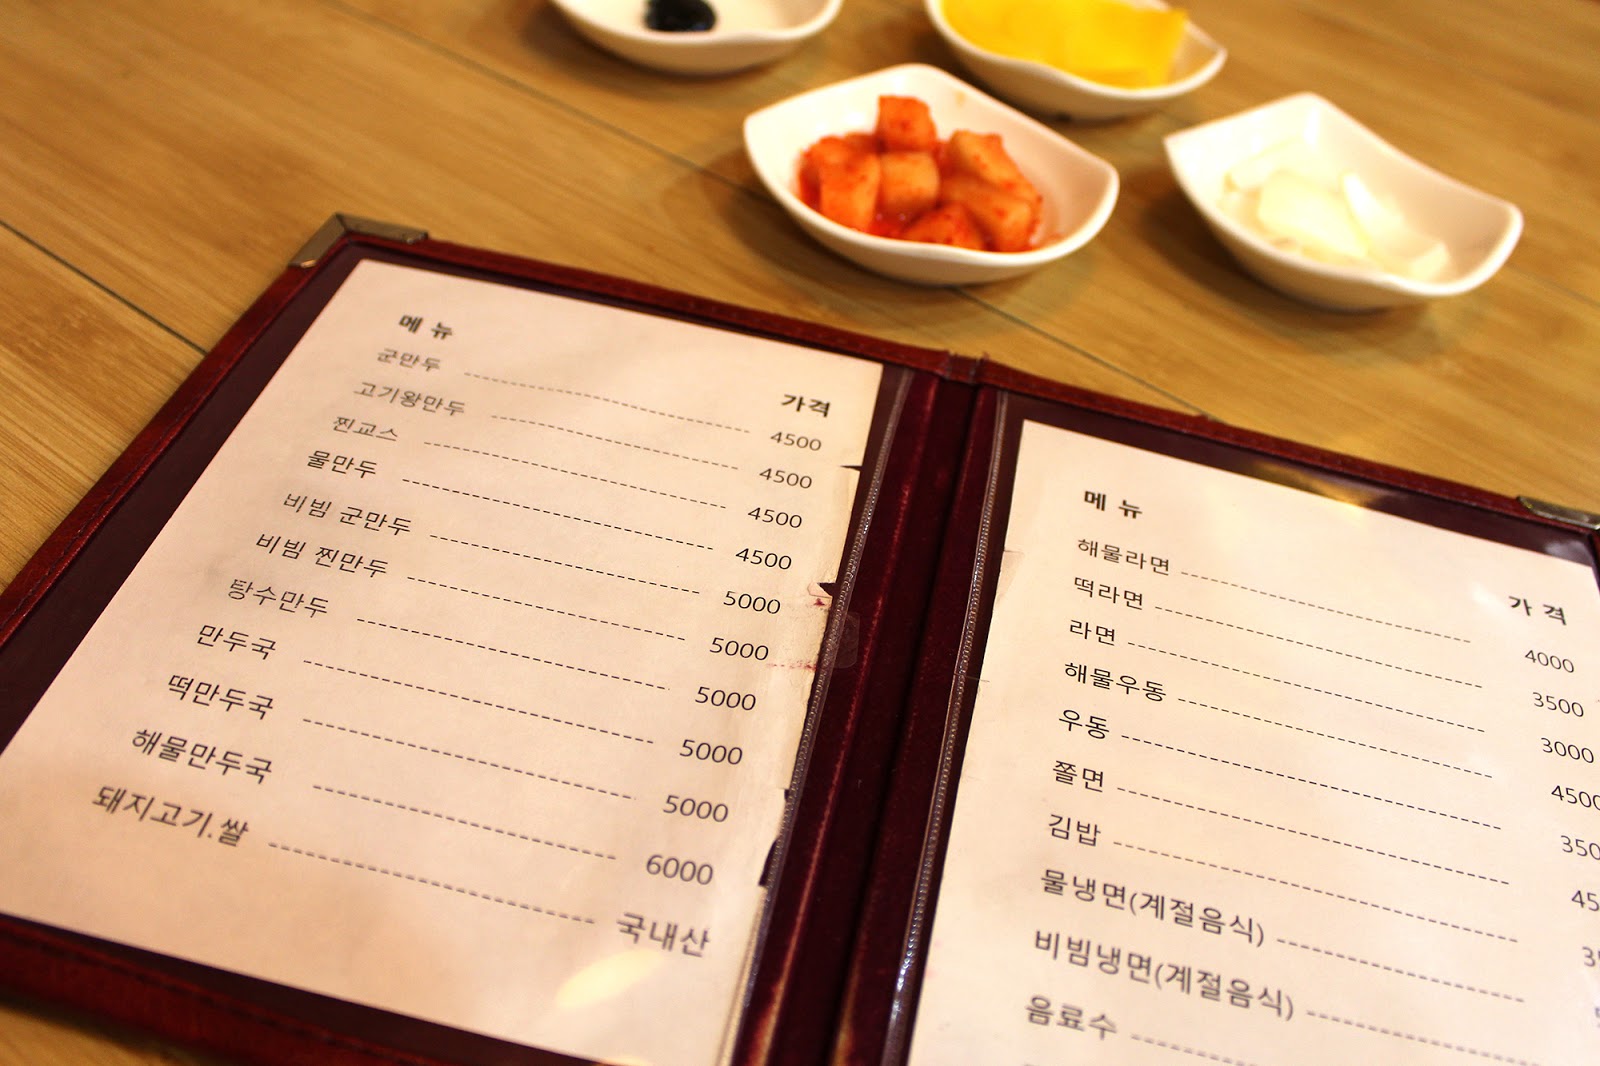 메 뉴 가격
군만두 4500
고기왕만두 4500
찐교스 4500
물만두 4500
비빔 군만두 5000
비빔 찐만두 5000
탕수만두 5000
만두국 5000
떡만두국 5000
해물만두국 6000
돼지고기.쌀 국내산
메 뉴 가 격
해물라면 4000
떡라면 3500
라면 3000
해물우동 4500
우동 350
쫄면 45
김밥
물냉면(계절음식)
비빔냉면(계절음식)
음료수